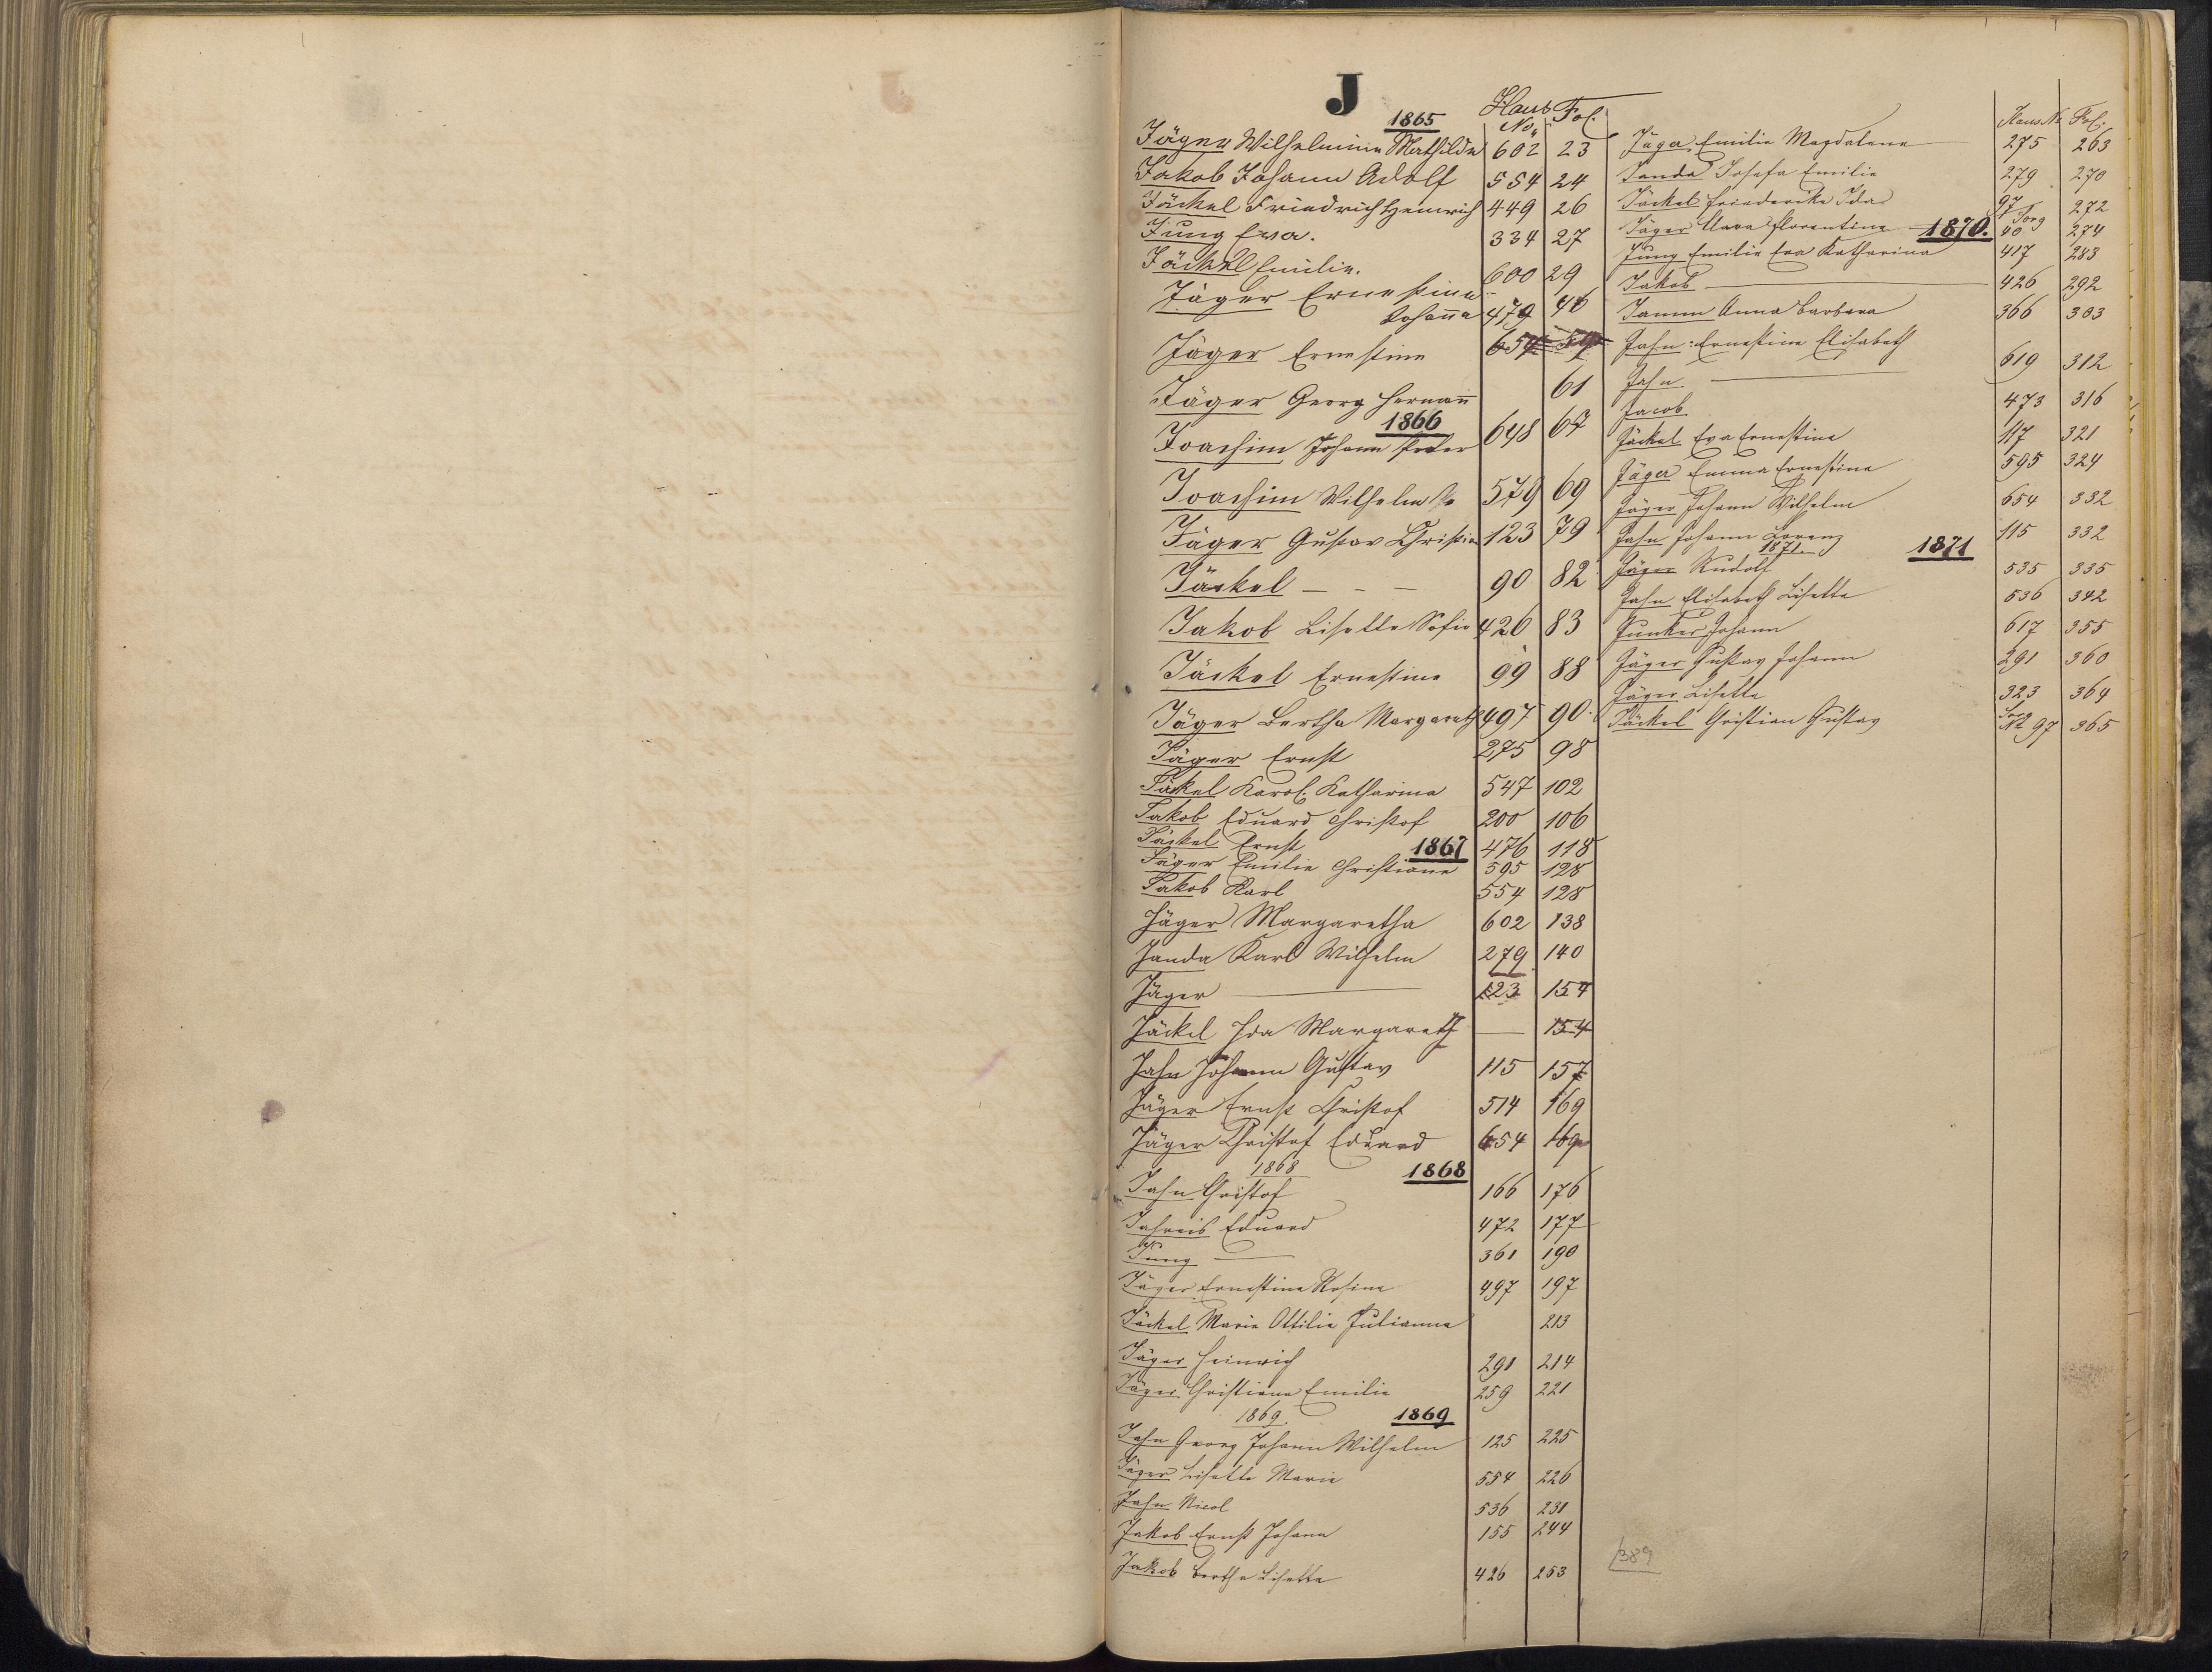 J
1865 Haus No. Fol.
Jäger Wilhelmine Mathilde 602 23
Jakob Johann Adolf 554 24
Jäckel Friedrich Heinrich 449 26
Jung Eva. 334 27
Jäckel Emilie. 600 29
Jäger Ernestina
Johanna 479 46
Jäger Ernestine
Jäger Georg Hermann 61
1866
Joachim Johann Peter 648 67
Joachim Wilhelm 579 69
Jäger Gustav Christian 123 79
Jäckel – – – 90 82
Jakob Lisette Sofie 426 83
Jäckel Ernestine 99 88
Jäger Bertha Margareth 497 90
Jäger Ernst 275 98
Jäckel Karol. Katharina 547 102
Jakob Eduard Christof 200 106
Jäckel Ernst 1867 476 118
Jäger Emilie Christiane 595 128
Jakob Karl 554 128
Jäger Margaretha 602 138
Janda Karl Wilhelm 279 140
Jäger — 123 154
Jäckel Ida Margareth — 154
Jahn Johann Gustav 115 157
Jäger Ernst Christof 514 169
Jäger Christof Eduard 654 169
1868 1868
Jahn Christof 166 176
Jahreis Eduard 472 177
Jung — 361 190
Jäger Ernestine Rosine 497 197
Jäckel Marie Ottilie Julianna 213
Jäger Heinrich 291 214
Jäger Christiana Emilie 259 221
1869. 1869
Jahn Georg Johann Wilhelm 125 225
Jäger Lisette Marie 554 226
Jahn Nicol 536 231
Jakob Ernst Johann 155 244
Jakob Bertha Lisette 426 253
Haus No Fol.
Jäger Emilie Magdalena 275 263
Janda Josefa Emilie 279 270
Jäckel Friedericke Ida 97 272
Jäger Anna Florentine 1870. Sorg 40 274
Jung Emilie Eva Katharina 417 283
Jakob — 426 292
Jamm Anna Barbara 366 303
Jahn Ernestine Elisabeth 619 312
Jahn — 473 316
Jacob 117 321
Jäckel Eva Ernestine 595 324
Jäger Emma Ernestine 654 332
Jäger Johann Wilhelm 115 332
Jahn Johann Lorenz
1871 1871
Jäger Rudolf 535 335
Jahn Elisabeth Lisette 536 342
Junker Johann 617 355
Jäger Gustav Johann 291 360
Jäger Lisette 323 364
Jäckel Christian Gustav Sorg No 97 365
389